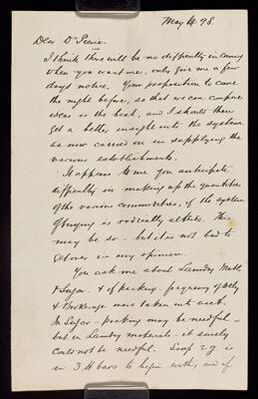 May 4. 98
Dear Dr Pierie.
I think there will be no difficulty in coming
when you want me, only give me a few
days notice. Your proposition to come
the night before, so that we can compare
ideas is the best, and I should then
get a better insight into the system
as now carried on in supplying the
various establishments.
It appears to me you anticipate
difficulty in making up the quantities
of the various commodities, if the system
of buying is radically altered. This
may be so - but it is not bad to
get over in my opinion.
You ask me about Laundry Matls
& Sugar. & if packing. frequency of dely
& Brokerage were taken into acct.
In Sugar - packing may be needful -
but in Laundry materials - it surely
could not be needful. Soap e.g. is
in 3 # bars to begin with, and of